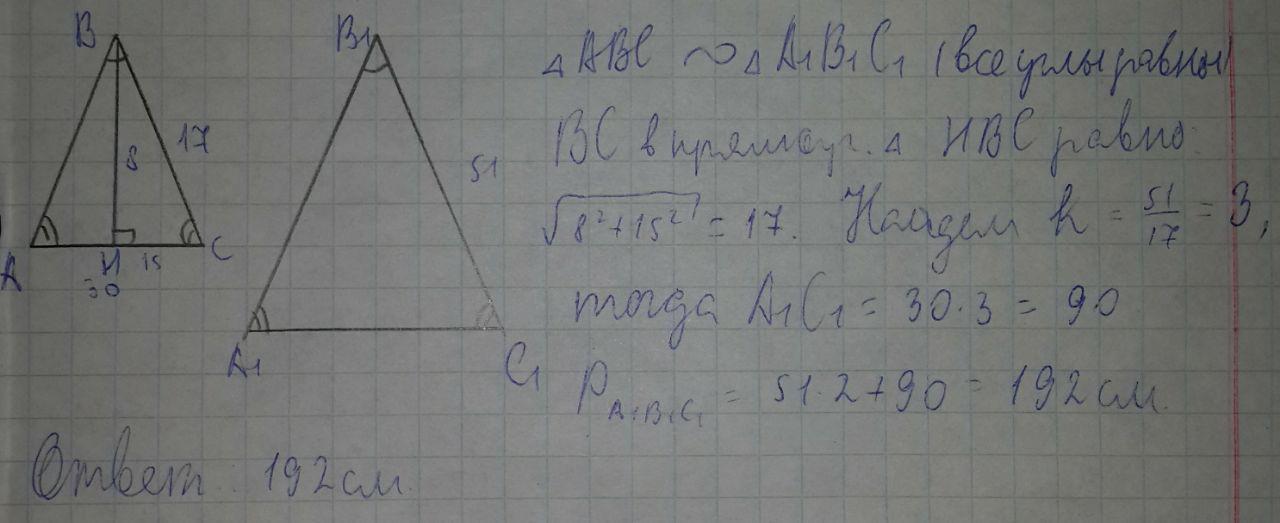 B
B₁
8
17
51
A
H
15
C
30
A₁
C₁
△ABC ∾ △A₁B₁C₁ (все углы равны)
BC в прямоуг. △ HBC равно:
√8²+15² = 17. Найдем k = 51/17 = 3,
тогда A₁C₁ = 30·3 = 90
P A₁B₁C₁ = 51·2+90 = 192 см.
Ответ: 192 см.